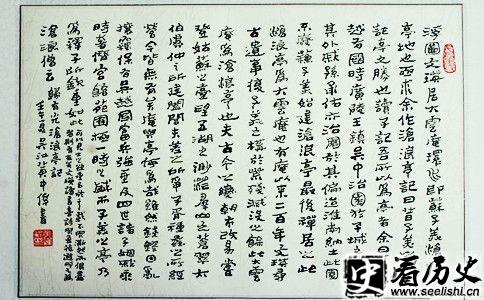 浮圖文瑛居大雲庵環水即蘇子美滄浪
亭地也亟求余作滄浪亭記曰昔子美之記
記亭之勝也請子記吾所以為亭者余曰昔吳
越有國時廣陵王鎮吳中治園于子城之西南
其外戚孫承佑亦治園於其偏迨淮海納土此園
不廢蘇子美始建滄浪亭最後禪者居之此
滄浪亭為大雲庵也有庵以來二百年文瑛尋
古遺事復子美之構於荒殘滅沒之餘此大雲
庵為滄浪亭也夫古今之變朝市改易嘗
登姑蘇之臺望五湖之渺茫群山之蒼翠太
伯虞仲之所建闔閭夫差之所爭子胥種蠡之所經
營今皆無有矣庵與亭何為者哉雖然錢鏐因亂
攘竊保有吳越國富兵強垂及四世諸子姻戚乘
時奢僭宮館苑囿極一時之盛而子美之亭乃
為釋子所欽重如此
滄浪僧云 歸有光滄浪亭記
史看历史
www.seelishi.cn